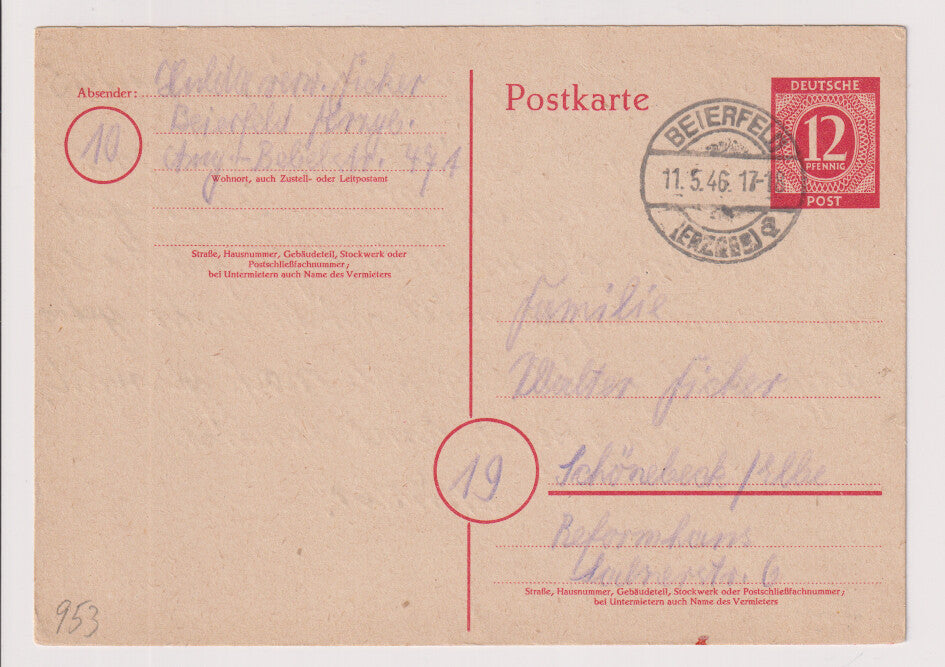 Absender: verw. Ficker
10
Beierfeld /Erzgb.
Aug.-Bebelstr. 47A
Wohnort, auch Zustell- oder Leitpostamt
Straße, Hausnummer, Gebäudeteil, Stockwerk oder
Postschließfachnummer;
bei Untermietern auch Name des Vermieters
Postkarte
DEUTSCHE
12
PFENNIG
POST
BEIERFELD
11.5.46. 17-18
(ERZGEB.) a
Familie
Walter Ficker
19
Schönebeck /Elbe
Reformhaus
6
Straße, Hausnummer, Gebäudeteil, Stockwerk oder Postschließfachnummer;
bei Untermietern auch Name des Vermieters
953